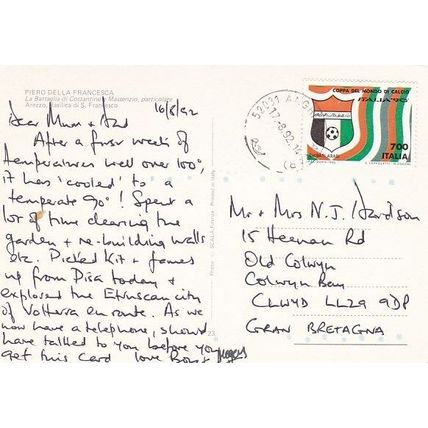 PIERO DELLA FRANCESCA
La Battaglia di Costantino e Massenzio, particolare
Arezzo, Basilica di S. Francesco
16/8/92
Dear Mum + Dad
After a first week of
temperatures well over 100°,
it has 'cooled' to a
temperate 90°! Spent a
lot of time clearing the
garden + re-building walls
etc. Picked Kit + James
up from Pisa today +
explored the Etruscan city
of Volterra en route. As we
now have a telephone, should
have talked to you before you
get this card love
SCALA
Printed in Italy
52031
17-8-92
COPPA DEL MONDO DI CALCIO
ITALIA '90
700
ITALIA
Mr + Mrs N.J.
15 Heenan Rd
Old Colwyn
Colwyn Bay
CLWYD LL29 9DP
GRAN BRETAGNA